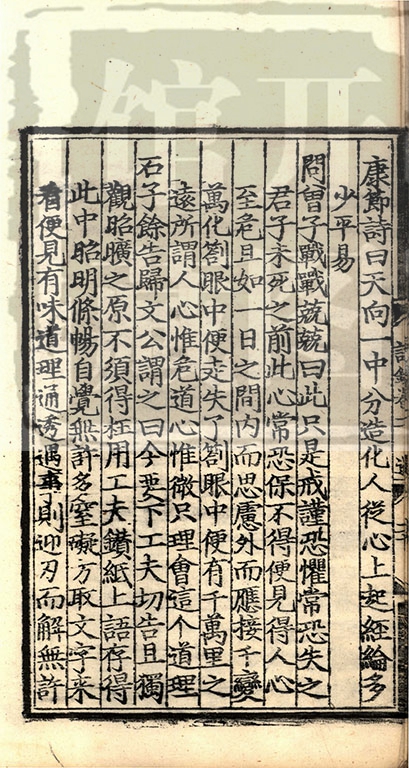 康節詩曰天向一中分造化人從心上起經綸多
少平易
問曾子戰戰兢兢曰此只是戒謹恐懼常恐失之
君子未死之前此心常恐保不得便見得人心
至危且如一日之間內而思慮外而應接千變
萬化劄眼中便走失了劄眼中便有千萬里之
遠所謂人心惟危道心惟微只理會這个道理
石子餘告歸文公謂之曰今要下工夫切告且獨
觀昭曠之原不須得枉用工夫鑚紙上語存得
此中昭明條暢自覺無許多窒礙方取文字來
看便見有味道理通透遇事則迎刃而解無許